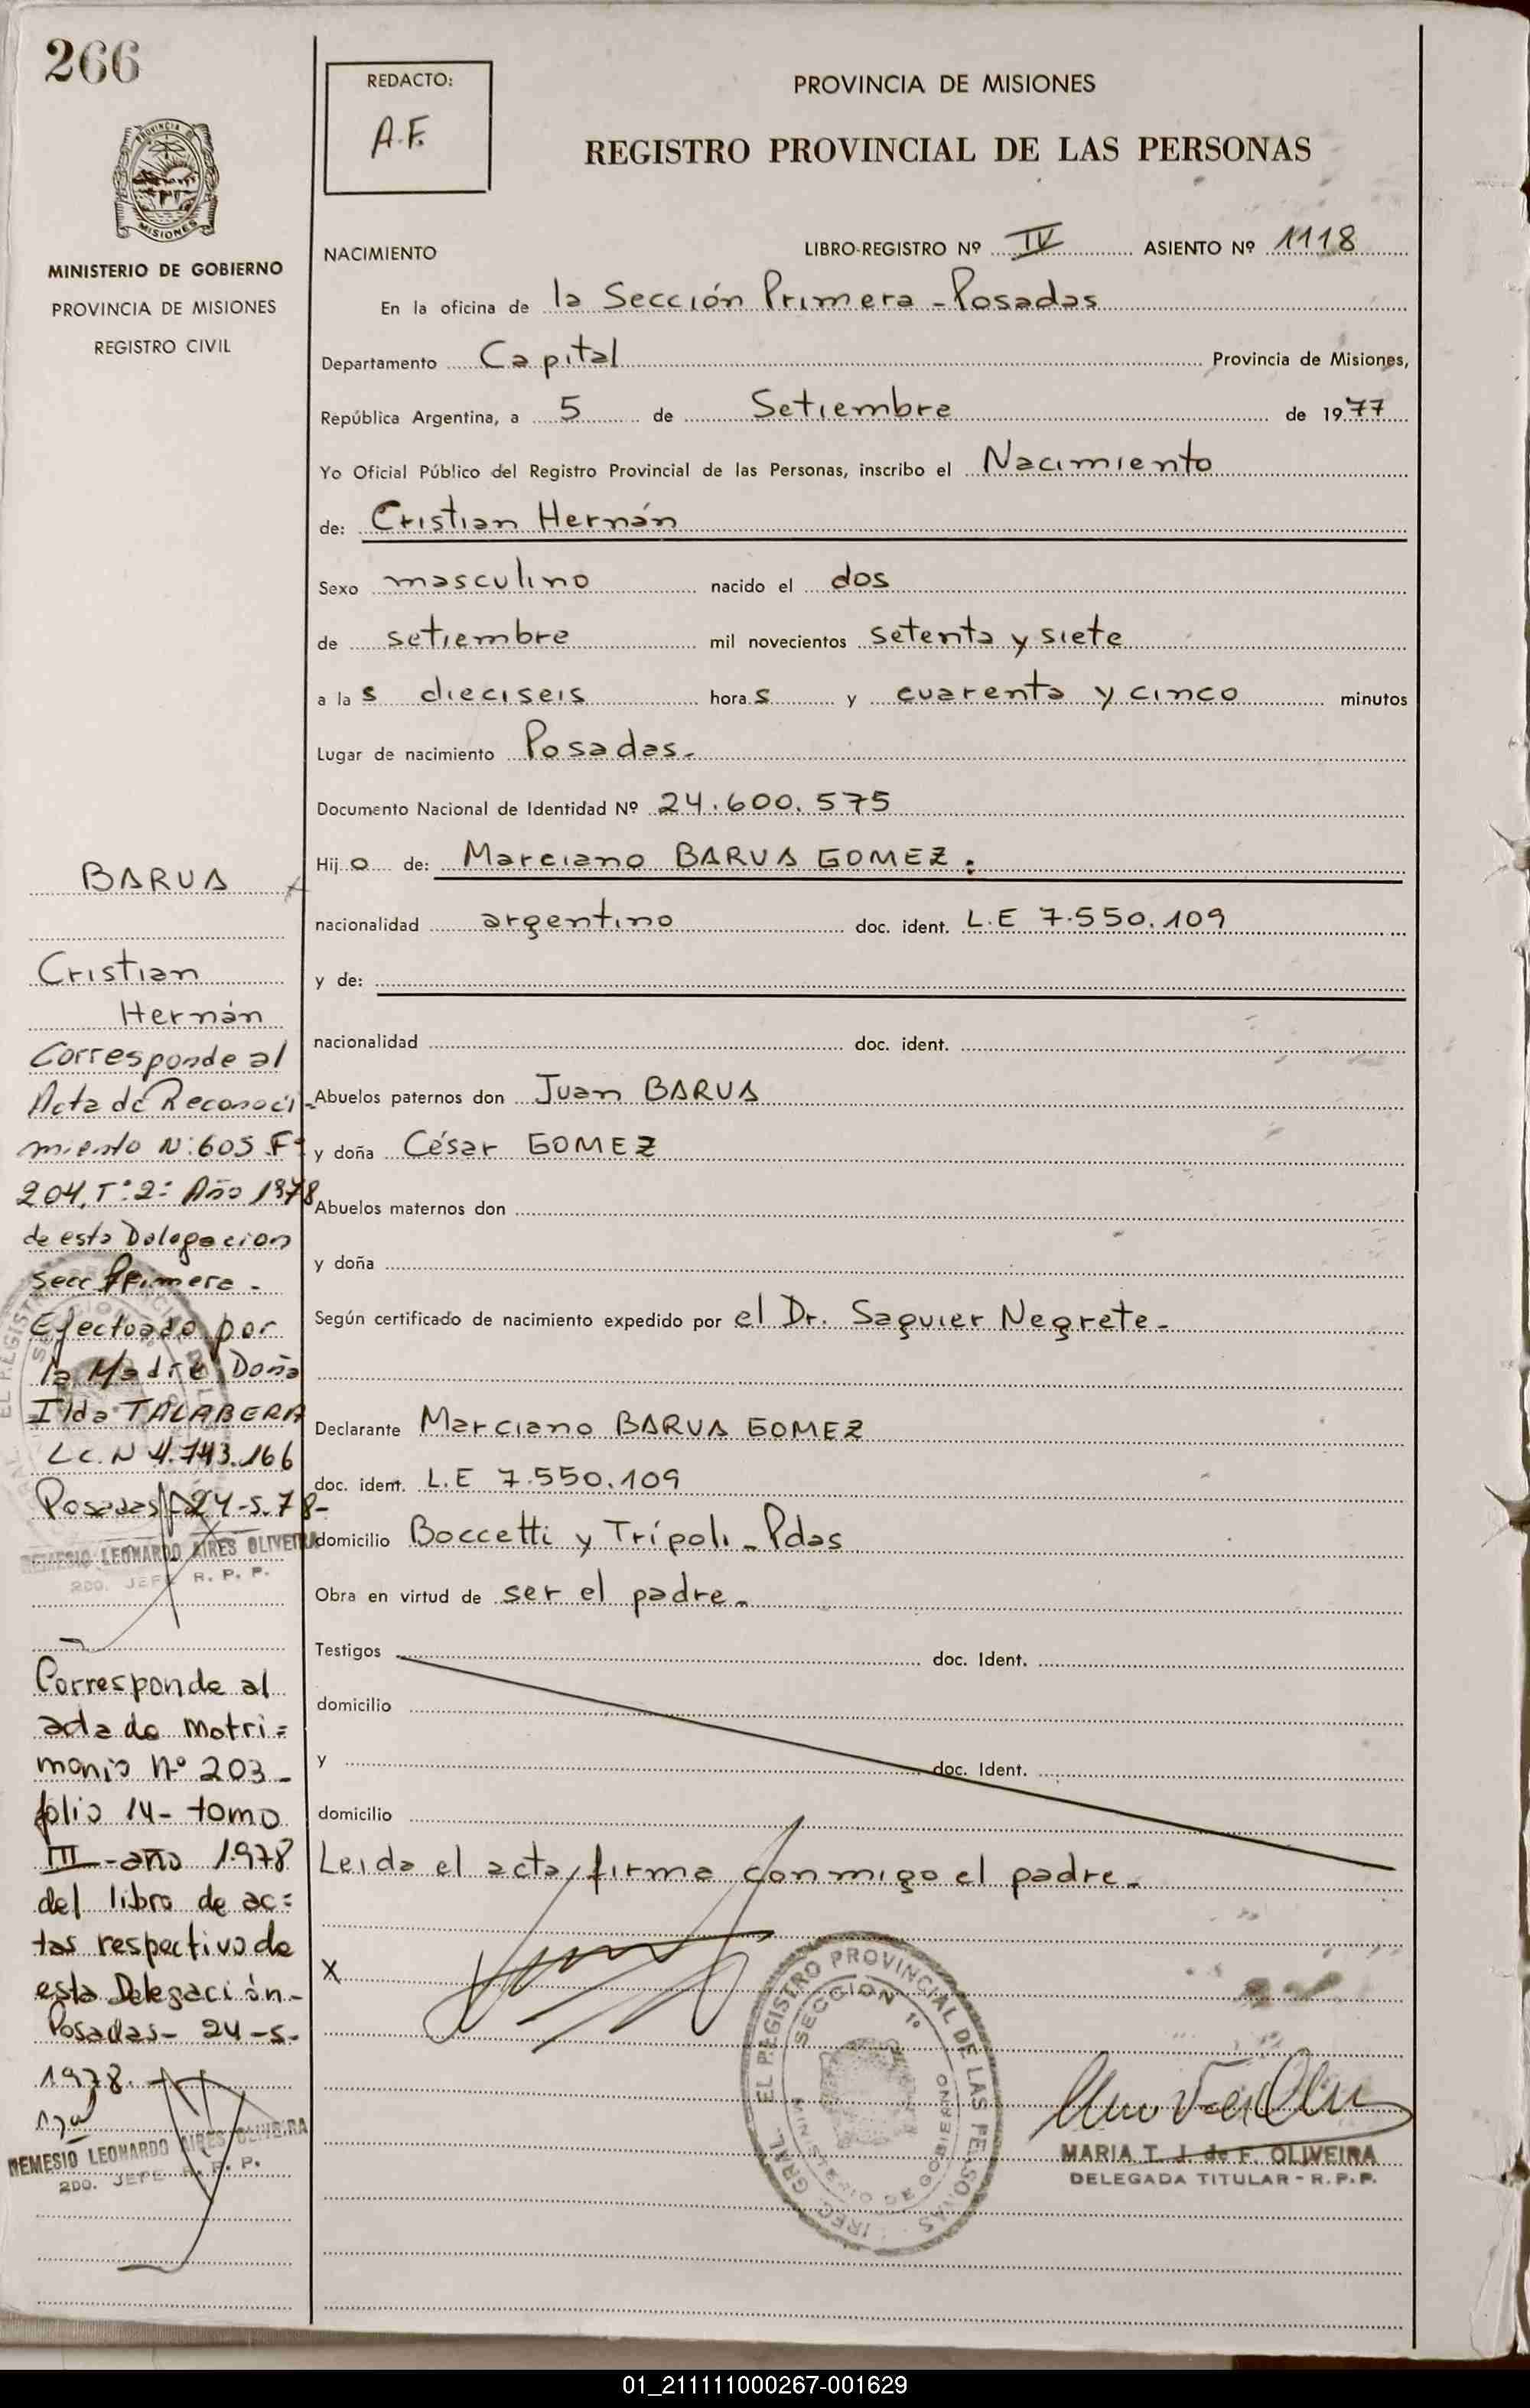 266
PROVINCIA DE
MISIONES
MINISTERIO DE GOBIERNO
PROVINCIA DE MISIONES
REGISTRO CIVIL
BARUA
Cristian
Hernán
Corresponde al
Acta de Reconoci-
miento N: 605 Fº
204, Tº 2º Año 1978
de esta Delegacion
secc Primera -
Efectuado por
la Madre Doña
Ilda TALABERA
L.C. N 4.743.166
Posadas 24-5-78-
REMESIO LEONARDO AIRES OLIVEIRA
2DO. JEFE R. P. P.
Corresponde al
acta de Matri=
monio Nº 203-
folio 14- tomo
III - año 1978
del libro de ac=
tas respectivo de
esta Delegación-
Posadas- 24-5-
1978.
REMESIO LEONARDO AIRES OLIVEIRA
2DO. JEFE R. P. P.
REDACTO:
A.F.
PROVINCIA DE MISIONES
REGISTRO PROVINCIAL DE LAS PERSONAS
NACIMIENTO LIBRO-REGISTRO Nº IV ASIENTO Nº 1118
En la oficina de la Sección Primera - Posadas
Departamento Capital Provincia de Misiones,
República Argentina, a 5 de Setiembre de 1977
Yo Oficial Público del Registro Provincial de las Personas, inscribo el Nacimiento
de: Cristian Hernán
Sexo masculino nacido el dos
de setiembre mil novecientos setenta y siete
a las dieciseis horas y cuarenta y cinco minutos
Lugar de nacimiento Posadas.
Documento Nacional de Identidad Nº 24.600.575
Hijo de: Marciano BARUA GOMEZ:
nacionalidad argentino doc. ident. L.E 7.550.109
y de:
nacionalidad doc. ident.
Abuelos paternos don Juan BARUA
y doña César GOMEZ
Abuelos maternos don
y doña
Según certificado de nacimiento expedido por el Dr. Saguier Negrete-
Declarante Marciano BARUA GOMEZ
doc. ident. L.E 7.550.109
domicilio Boccetti y Trípoli - Pdas
Obra en virtud de ser el padre.
Testigos doc. Ident.
domicilio
y doc. Ident.
domicilio
Leida el acta, firma conmigo el padre.
X
EL REGISTRO PROVINCIAL DE LAS PERSONAS
SECCION 1º
MINISTERIO DE GOBIERNO
MARIA T. J. de F. OLIVEIRA
DELEGADA TITULAR - R.P.P.
01_211111000267-001629